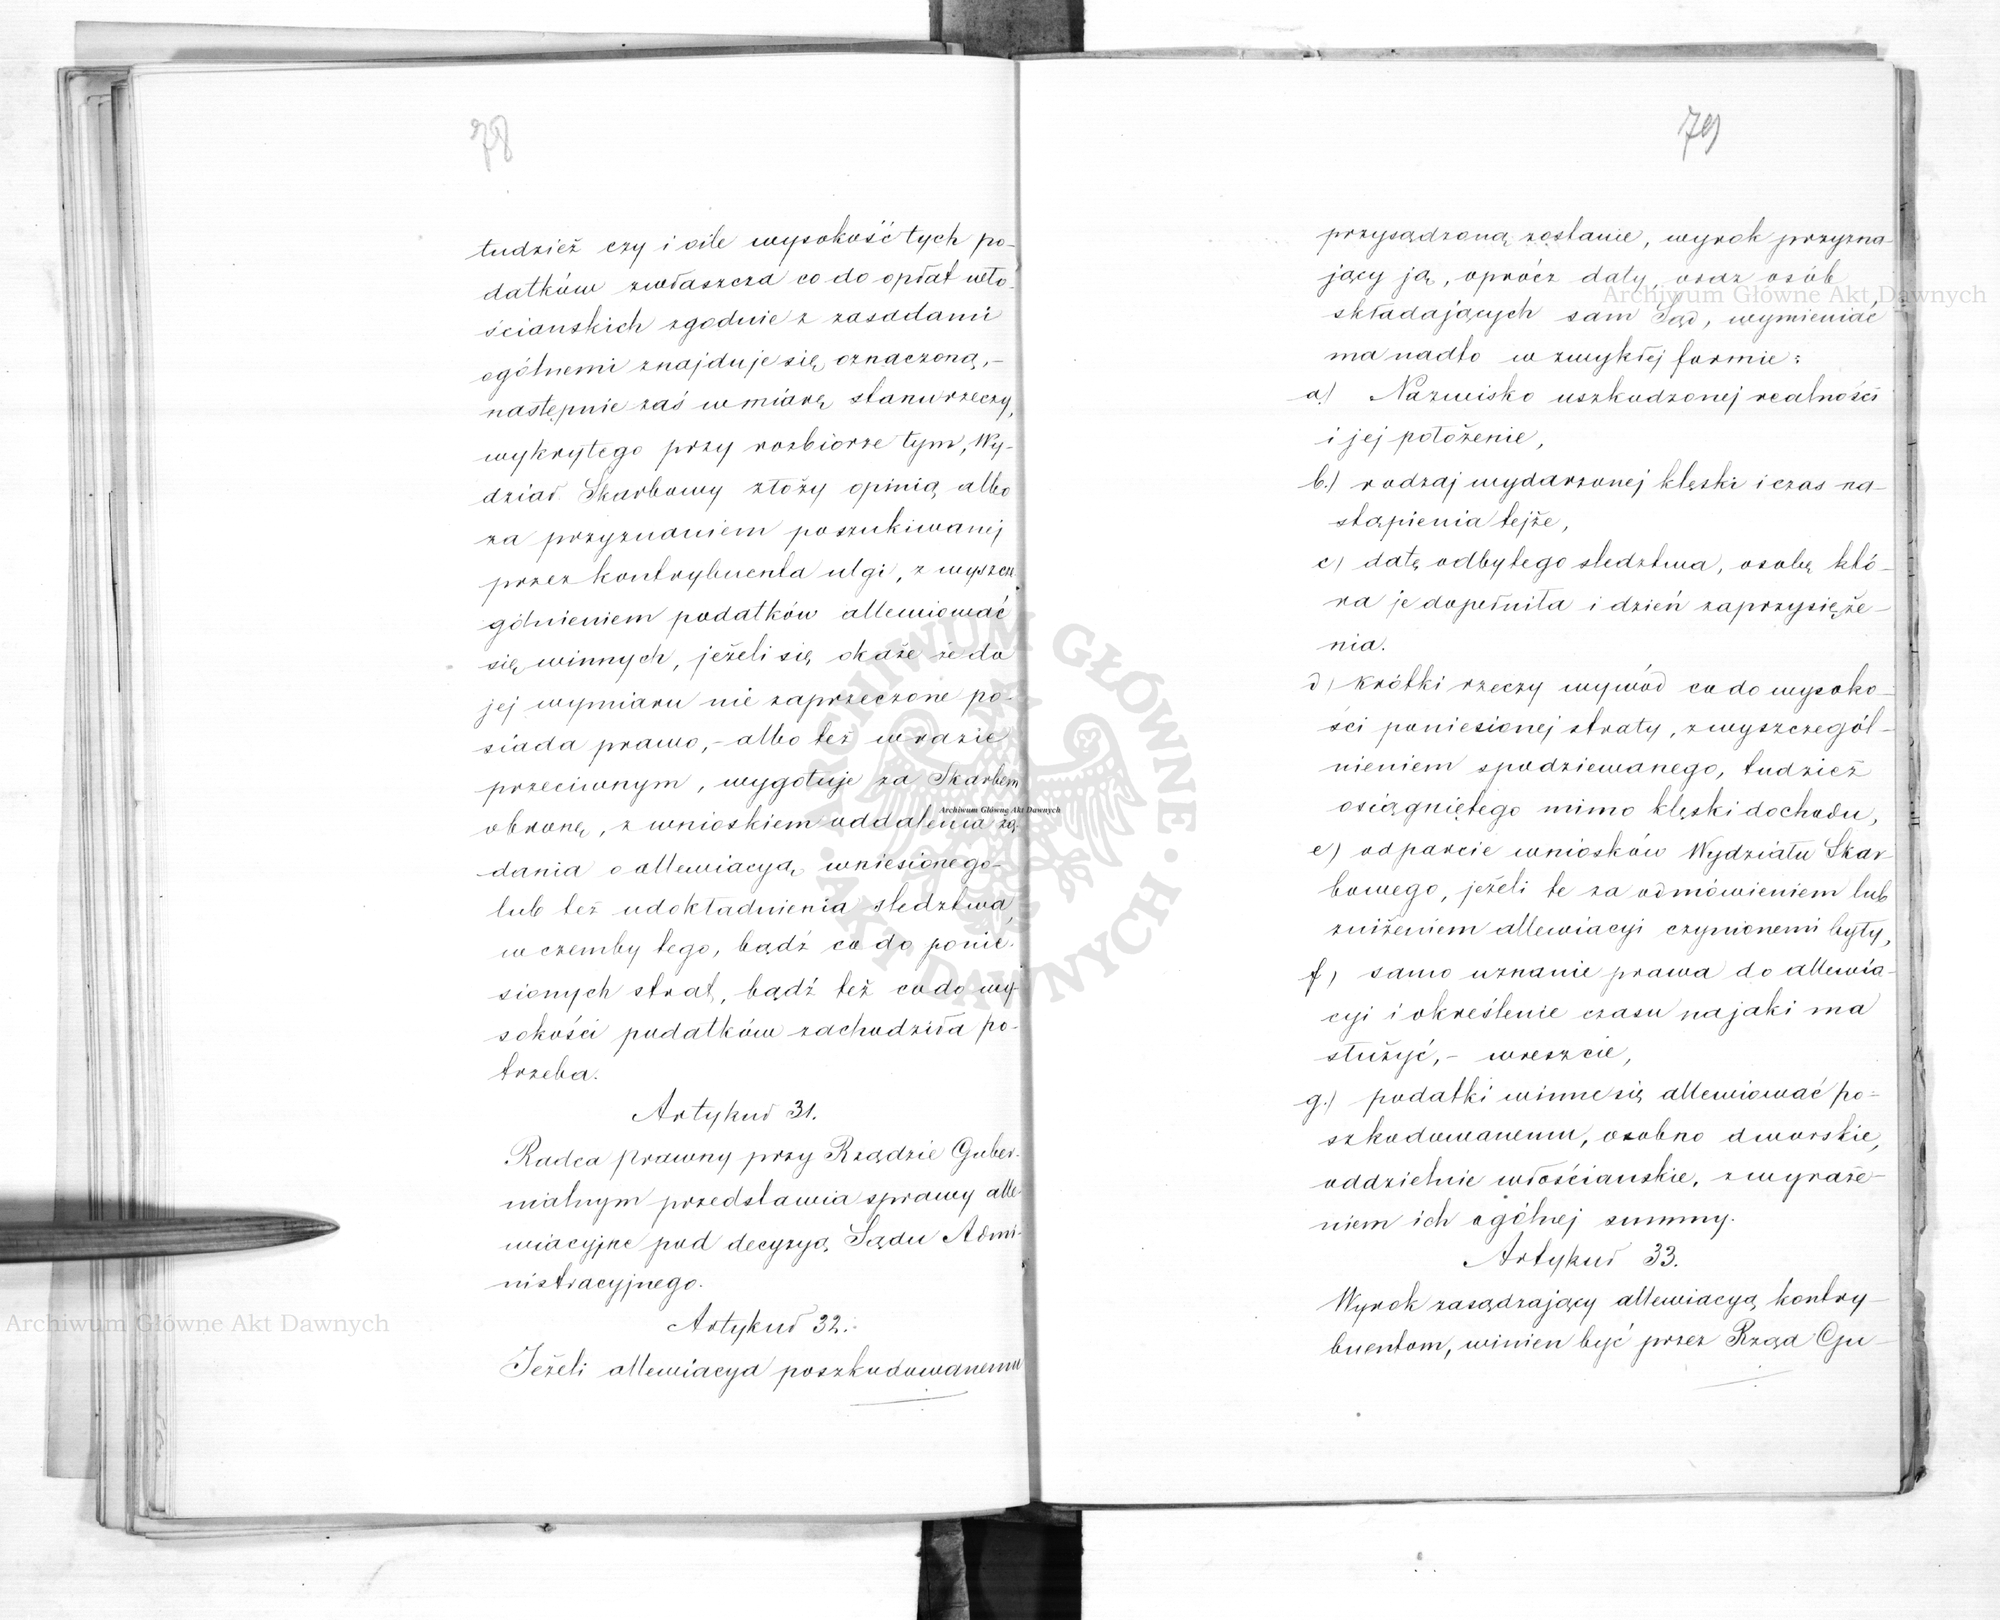 78
tudzież czy i oile wysokość tych po-
datków zwłaszcza co do opłat wło-
ściańskich zgodnie z zasadami
ogólnemi znajduje się oznaczoną,-
następnie zaś w miarę stanu rzeczy,
wykrytego przy rozbiorze tym, Wy-
dział Skarbowy złoży opinią albo
za przyznaniem poszukiwanej
przez kontrybuenta ulgi, z wyszcze
gólnieniem podatków allewiować
się winnych, jeżeli się okaże że do
jej wymiaru nie zaprzeczone po-
siada prawo,- albo też w razie
przeciwnym, wygotuje za Skarbem
obronę, z wnioskiem oddalenia żą-
dania o allewiacyą wniesionego-
lub też udokładnienia śledztwa,
w czemby tego, bądź co do ponie-
sionych strat, bądź też co do wy-
sokości podatków zachodziła po-
trzeba.
Artykuł 31.
Radca prawny przy Rządzie Guber-
nialnym przedstawia sprawy alle-
wiacyjne pod decyzyą Sądu Admi-
nistracyjnego.
Artykuł 32.
Jeżeli allewiacya poszkodowanemu
79
przysądzoną zostanie, wyrok przyzna-
jący ją, oprócz daty, oraz osób
składających sam Sąd, wymieniać
ma nadto w zwykłej formie:
a) Nazwisko uszkodzonej realności
i jej położenie,
b.) rodzaj wydarzonej klęski i czas na-
stąpienia tejże,
c) datę odbytego śledztwa, osobę któ-
ra je dopełniła i dzień zaprzysięże-
nia.
d) krótki rzeczy wywód co do wysoko-
ści poniesionej straty, z wyszczegól-
nieniem spodziewanego, tudzież
osiągniętego mimo klęski dochodu,
e) odparcie wniosków Wydziału Skar-
bowego, jeżeli te za odmówieniem lub
zniżeniem allewiacyi czynionemi były,
f) samo uznanie prawa do allewia-
cyi i określenie czasu na jaki ma
służyć,- wreszcie,
g.) podatki winne się allewiować po-
szkodowanemu, osobno dworskie,
oddzielnie włościańskie, z wyraże-
niem ich ogólnej summy.
Artykuł 33.
Wyrok zasądzający allewiacyą kontry-
buentom, winien być przez Rząd Gu-
Archiwum Główne Akt Dawnych
Archiwum Główne Akt Dawnych
Archiwum Główne Akt Dawnych
ARCHIWUM GŁÓWNE AKT DAWNYCH